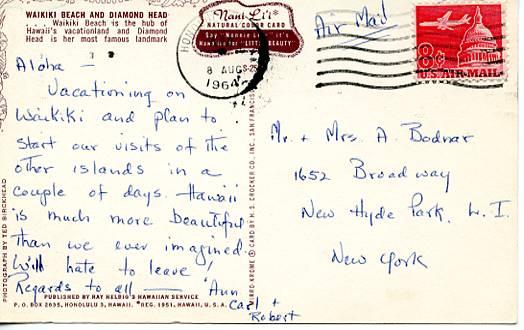 WAIKIKI BEACH AND DIAMOND HEAD
... Waikiki Beach is the hub of
Hawaii's vacationland and Diamond
Head is her most famous landmark
Nani Li'i
NATURAL COLOR CARD
Say "Nannie Lee" it's
Hawaiian for "LITTLE BEAUTY"
8 AUG
1964
Air Mail
8¢
U.S. AIR MAIL
Aloha -
Vacationing on
Waikiki and plan to
start our visits of the
other islands in a
couple of days. Hawaii
is much more beautiful
than we ever imagined.
Will hate to leave!
Regards to all — Ann
Carl +
Robert
Mr. + Mrs. A. Bodnar
1652 Broadway
New Hyde Park, L. I.
New York
PHOTOGRAPH BY TED BIRCKHEAD
CARD BY H. S. CROCKER CO., INC., SAN FRANCISCO
PUBLISHED BY RAY HELBIG'S HAWAIIAN SERVICE
P. O. BOX 2835, HONOLULU 3, HAWAII. ®REG. 1951, HAWAII, U. S. A.